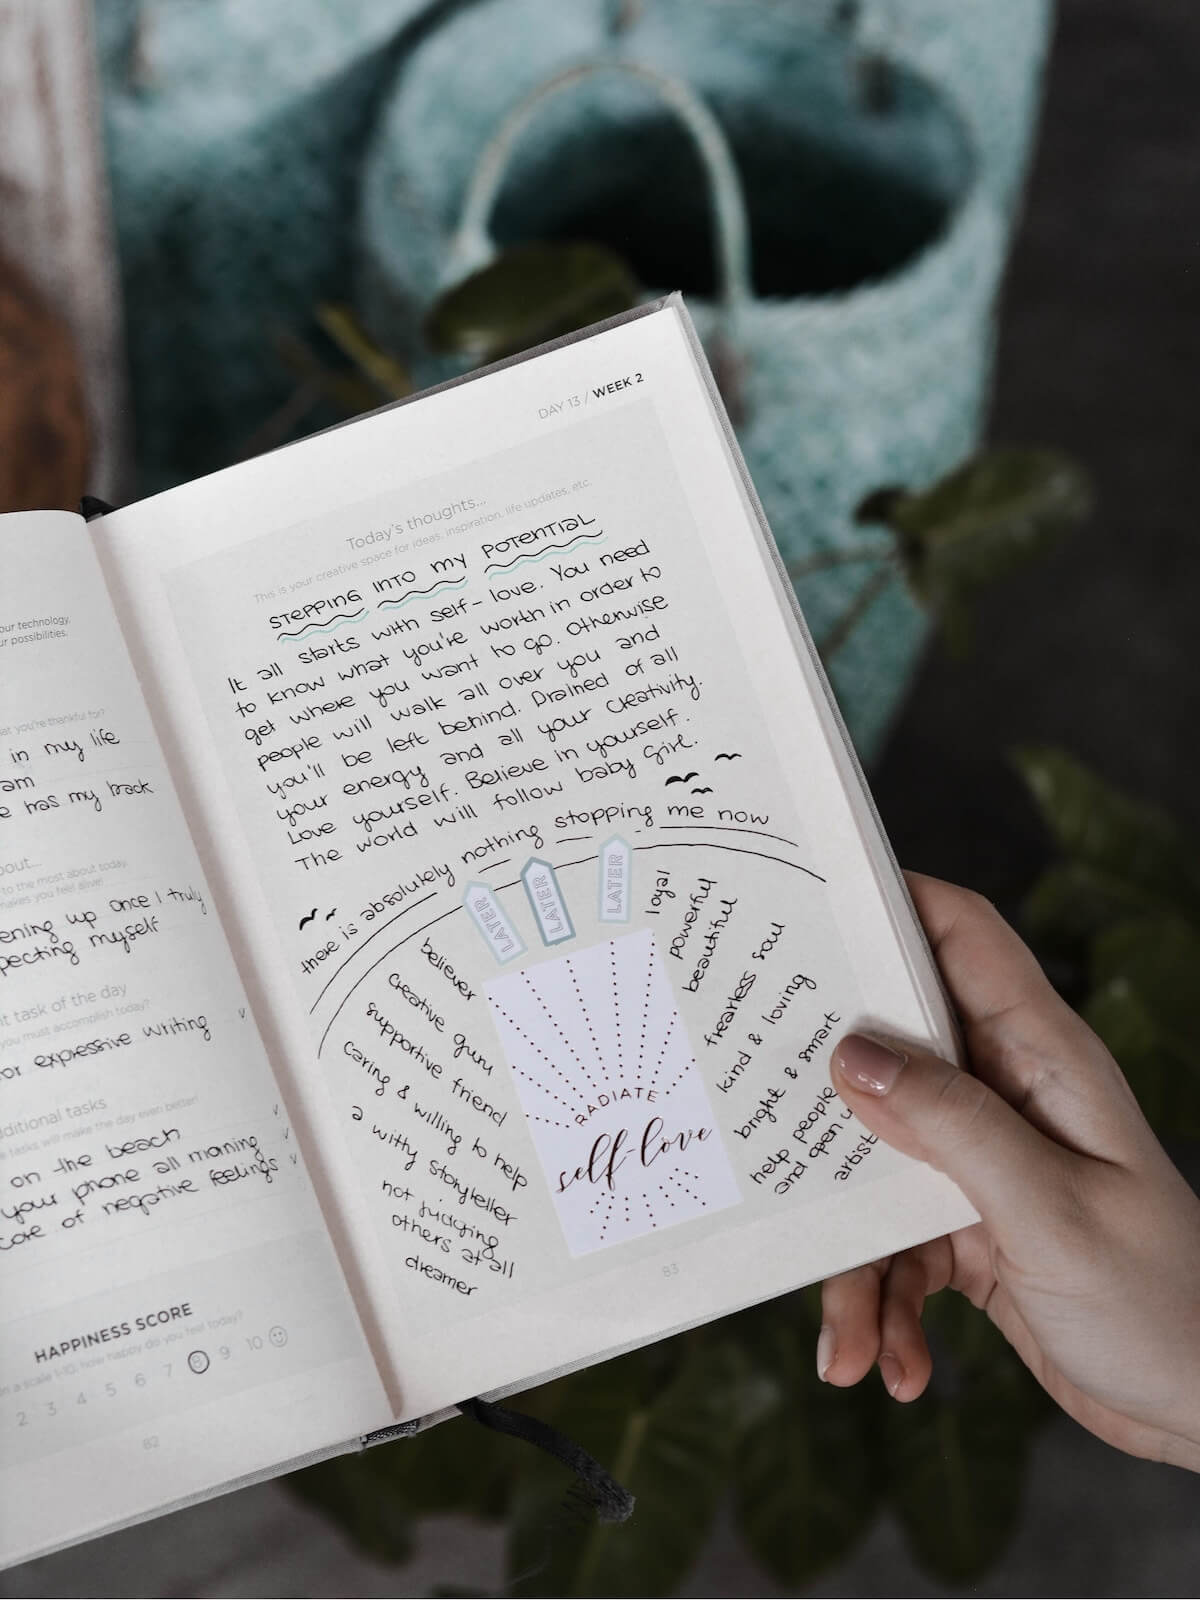 our technology,
ur possibilities.
at you're thankful for?
in my life
am
e has my back
bout...
to the most about today,
makes you feel alive!
ening up once I truly
pecting myself
nt task of the day
you must accomplish today?
or expressive writing
dditional tasks
tasks will make the day even better!
on the beach
your phone all morning
core of negative feelings
HAPPINESS SCORE
n a scale 1-10, how happy do you feel today?
2 3 4 5 6 7 8 9 10
82
DAY 13 / WEEK 2
Today's thoughts...
This is your creative space for ideas, inspiration, life updates, etc.
STEPPING INTO MY POTENTIAL
It all starts with self-love. You need
to know what you're worth in order to
get where you want to go. Otherwise
people will walk all over you and
you'll be left behind. Drained of all
your energy and all your creativity.
Love yourself. Believe in yourself.
The world will follow baby girl.
there is absolutely nothing stopping me now
LATER
LATER
LATER
believer
creative guru
supportive friend
caring & willing to help
a witty storyteller
not judging
others at all
dreamer
RADIATE
self-love
loyal
powerful
beautiful
fearless soul
kind & loving
bright & smart
help people
and open
artist
83